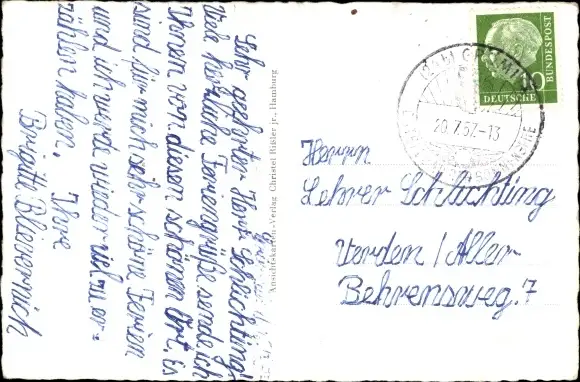 Sehr geehrter Herr Schlichting!
Viele herzliche Feriengrüße sende ich
Ihnen von diesem schönen Ort. Es
sind für mich sehr schöne Ferien
und ich werde wieder viel zu er-
zählen haben.
Ihre
Brigitte
Ansichtskarten-Verlag Christel Bißler jr., Hamburg
DEUTSCHE
BUNDESPOST
20.7.57-13
Herrn
Lehrer Schlichting
Verden / Aller
Behrensweg. 7